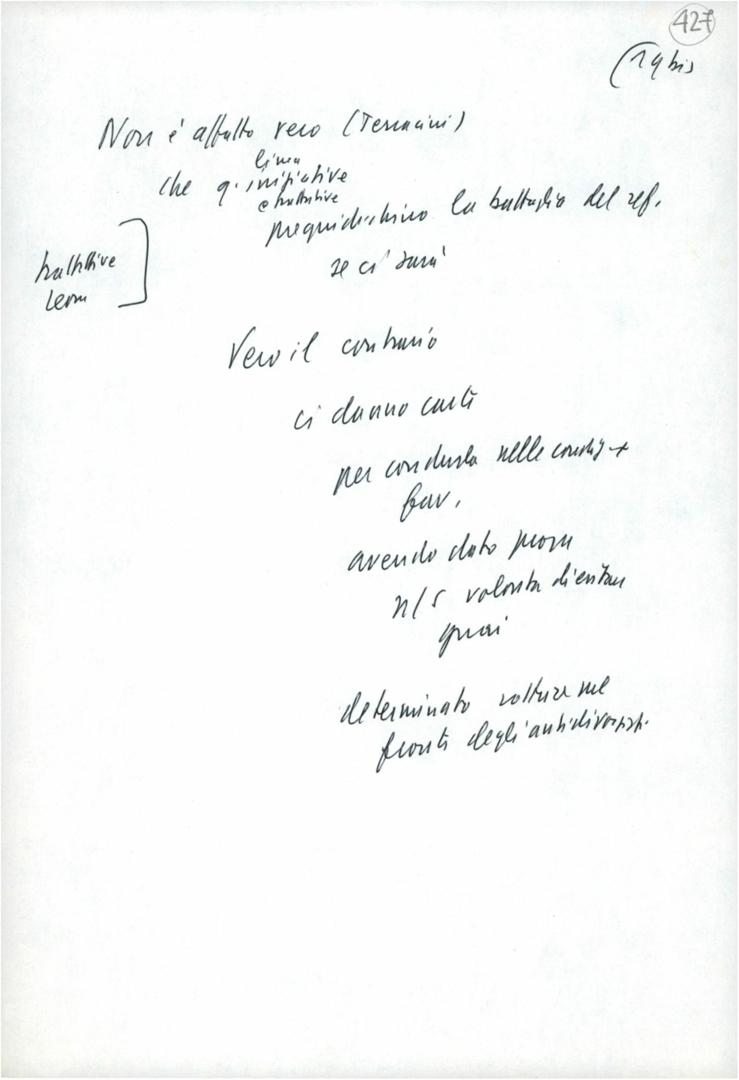 427
(19 bis
Non è affatto vero (Terracini)
linea
che q. iniziative
e trattative
pregiudichino la battaglia del ref.
se ci sarà
trattative
Leone
Vero il contrario
ci danno carte
per condurla nelle condiz. +
fav.
avendo dato prova
n/s volontà di evitare
guai
determinato rotture nel
fronte degli antidivorzisti.